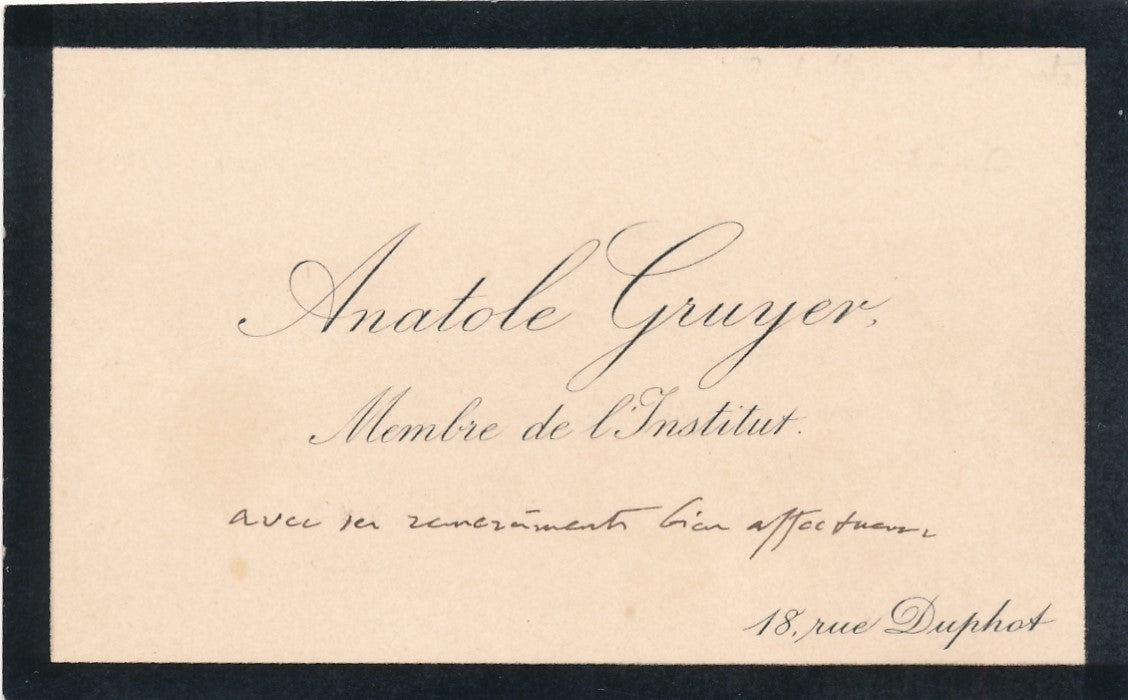 Anatole Gruyer,
Membre de l'Institut.
avec ses remerciments bien affectueux
18, rue Duphot